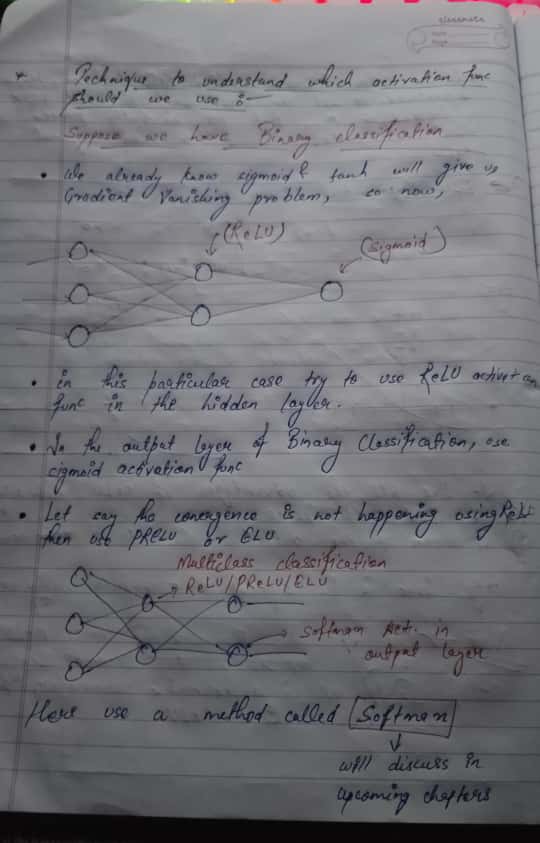 classmate
Date
Page
* Technique to understand which activation func
should we use :-
Suppose we have Binary classification
• We already know sigmoid & tanh will give us
Gradient Vanishing problem, so now,
(ReLU)
(sigmoid)
• in this particular case try to use ReLU activation
func in the hidden layer.
• In the output layer of Binary Classification, use
sigmoid activation func
• Let say the convergence is not happening using ReLU
then use PRELU or ELU
Multiclass classification
ReLU/PReLU/ELU
Softmax Act. in
output layer
Here use a method called Softmax
will discuss in
upcoming chapters